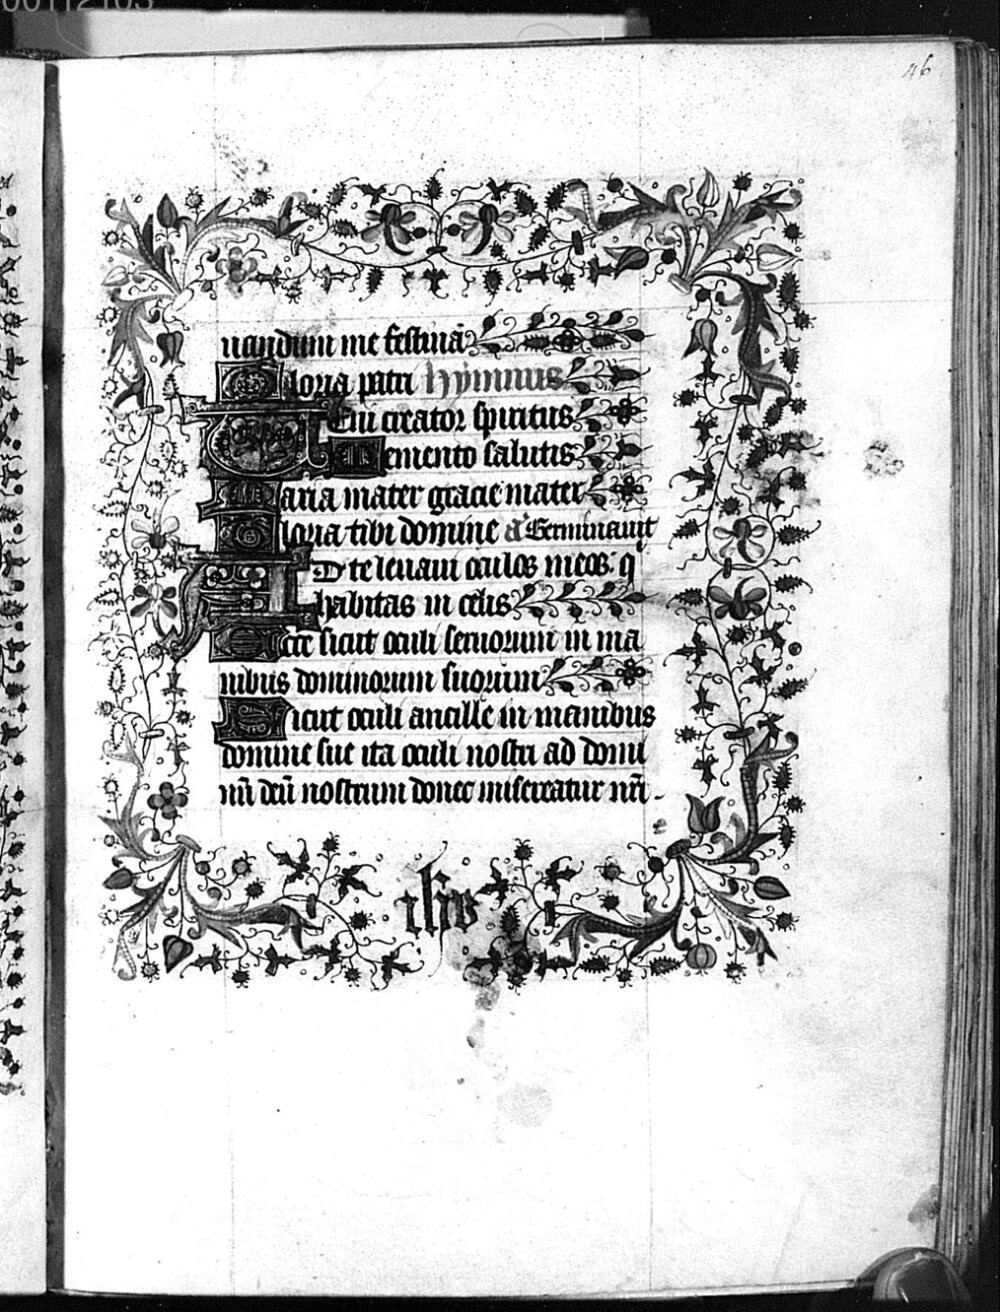 00112103
46
uandum me festinā
Gloria patri hymnus
Ueni creator spiritus
Memento salutis
Maria mater gracie mater
Gloria tibi domine añ Germinauit
AD te leuaui oculos meos: q
habitas in celis
Ecce sicut oculi seruorum in ma
nibus dominorum suorum
Sicut oculi ancille in manibus
domine sue ita oculi nostri ad domi
nū deū nostrum donec misereatur nr̄i